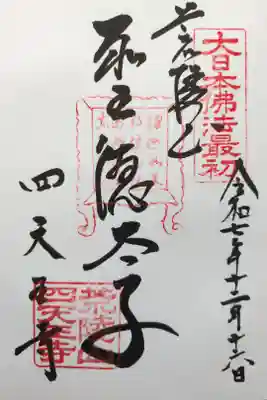 大日本佛法最初
令和七年十二月十六日
荒陵山
聖徳太子
四天王寺
荒陵山
四天王寺